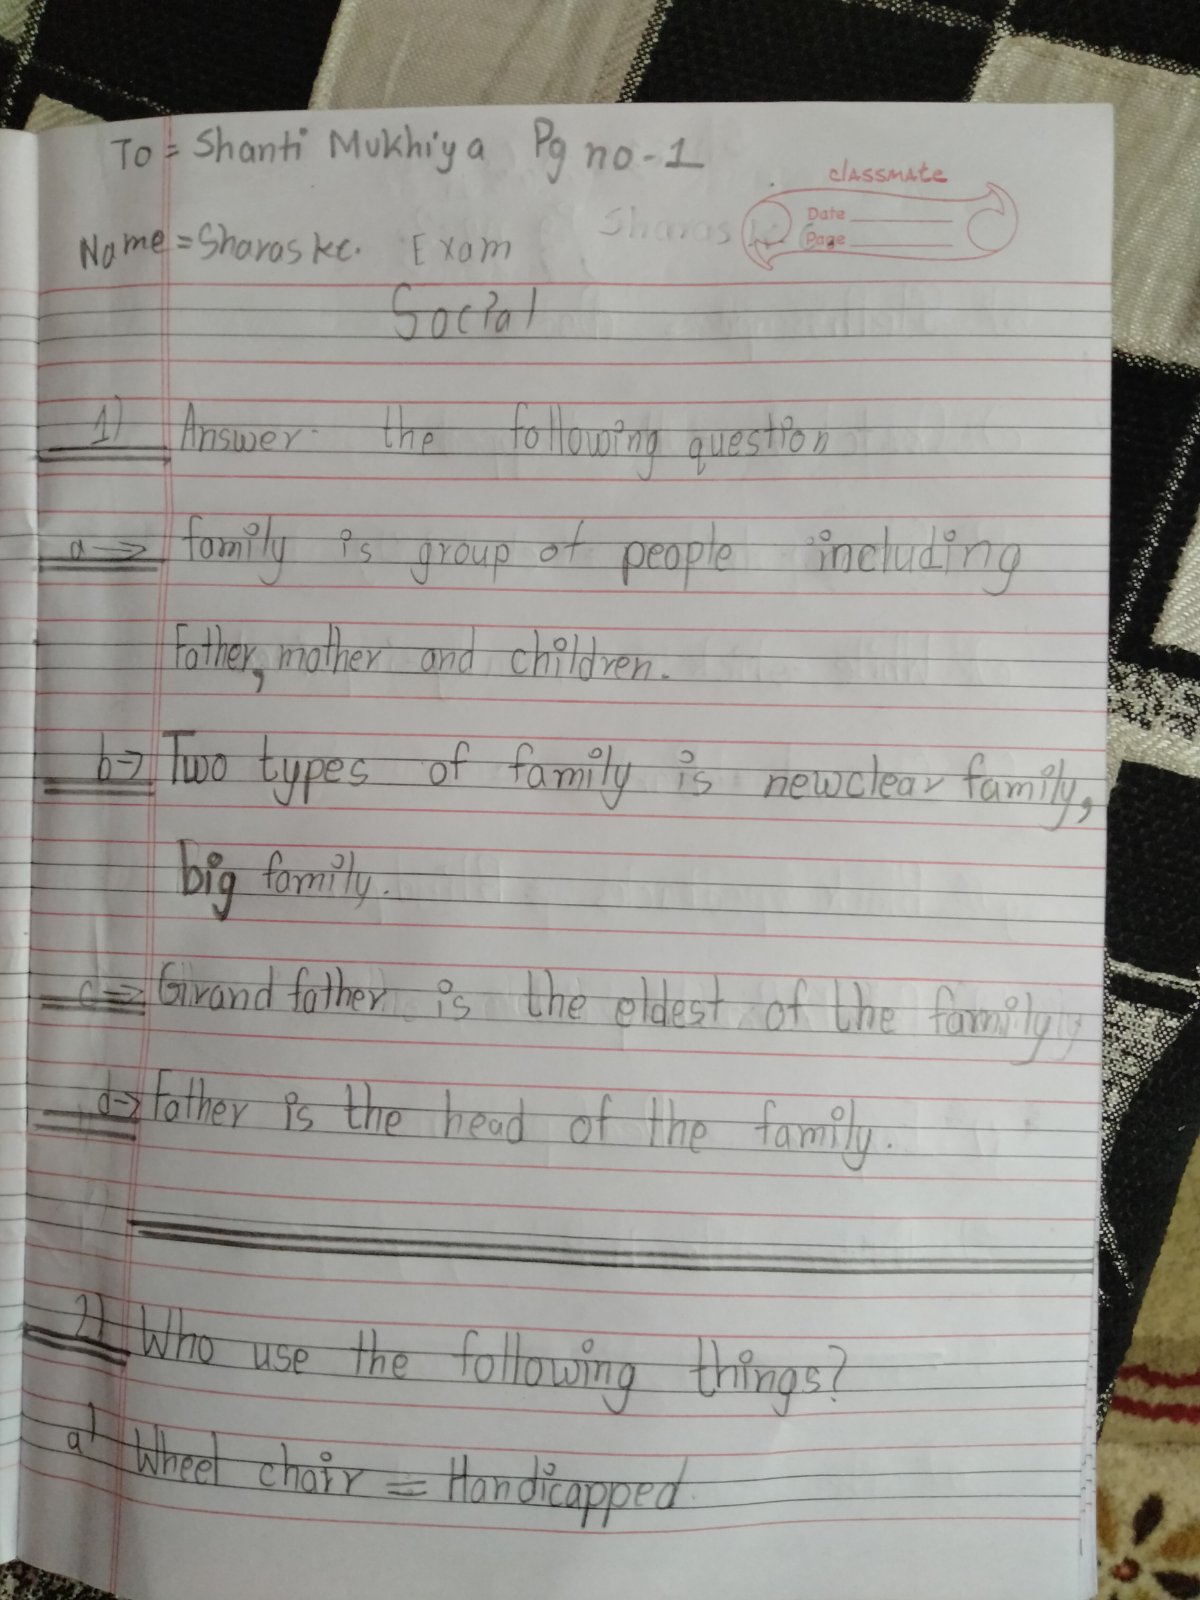 To = Shanti Mukhiya Pg no-1
classmate
Date
Page
Name = Sharas kc. Exam
Sharas k.c.
Social
1) Answer the following question
a→ family is group of people including
Father, mother and children.
b→ Two types of family is newclear family,
big family.
c→ Grand father is the eldest of the family
d→ Father is the head of the family.
2) Who use the following things?
a) Wheel chair = Handicapped.